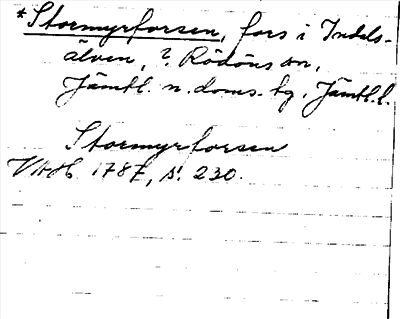 *Stormyrforsen, fors i Indals-
älven, ? Rödöns sn,
Jämtl. n. doms. tg, Jämtl. l.
Stormyrforsen
VAH 1787, s. 230.